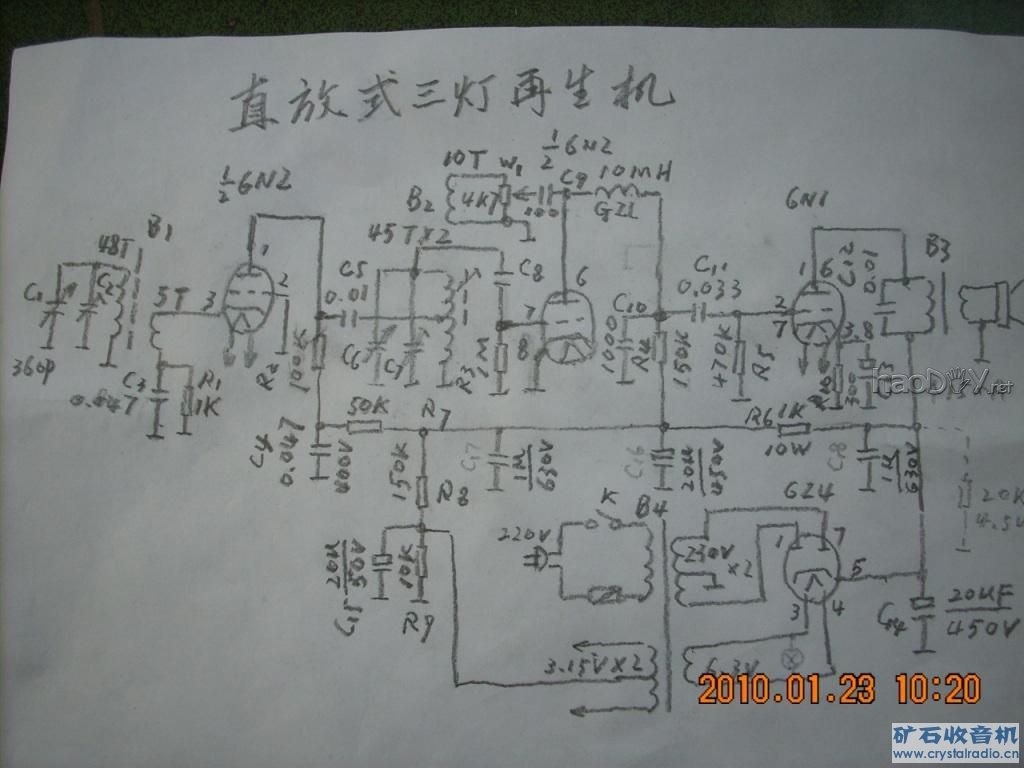 直放式三灯再生机
½6N2
10T W1
½6N2
C9 10mH
GZL
B2
4K7
100
6N1
B1
48T
C1
C2
360P
5T 3
1
2
C3
0.047
R1
1K
R2
100K
C5
0.01
45T×2
C6
C7
C8
R3
1M
6
7
8
C10
1000
R4
150K
C11
0.033
470K
R5
1 6
2
7
3
8
C12
0.01
B3
300
haoDIY.net
C4
0.047
400V
50K
R7
150K
R8
C17
1μ
630V
C16
20μ
450V
R6 1K
10W
C18
1μ
630V
20K
C15
20μ
50V
10K
R9
220V
K
B4
230V
×2
6Z4
1
7
5
3
4
C14
20μF
450V
3.15V×2
6.3V
2010.01.23 10:20
矿石收音机
www.crystalradio.cn